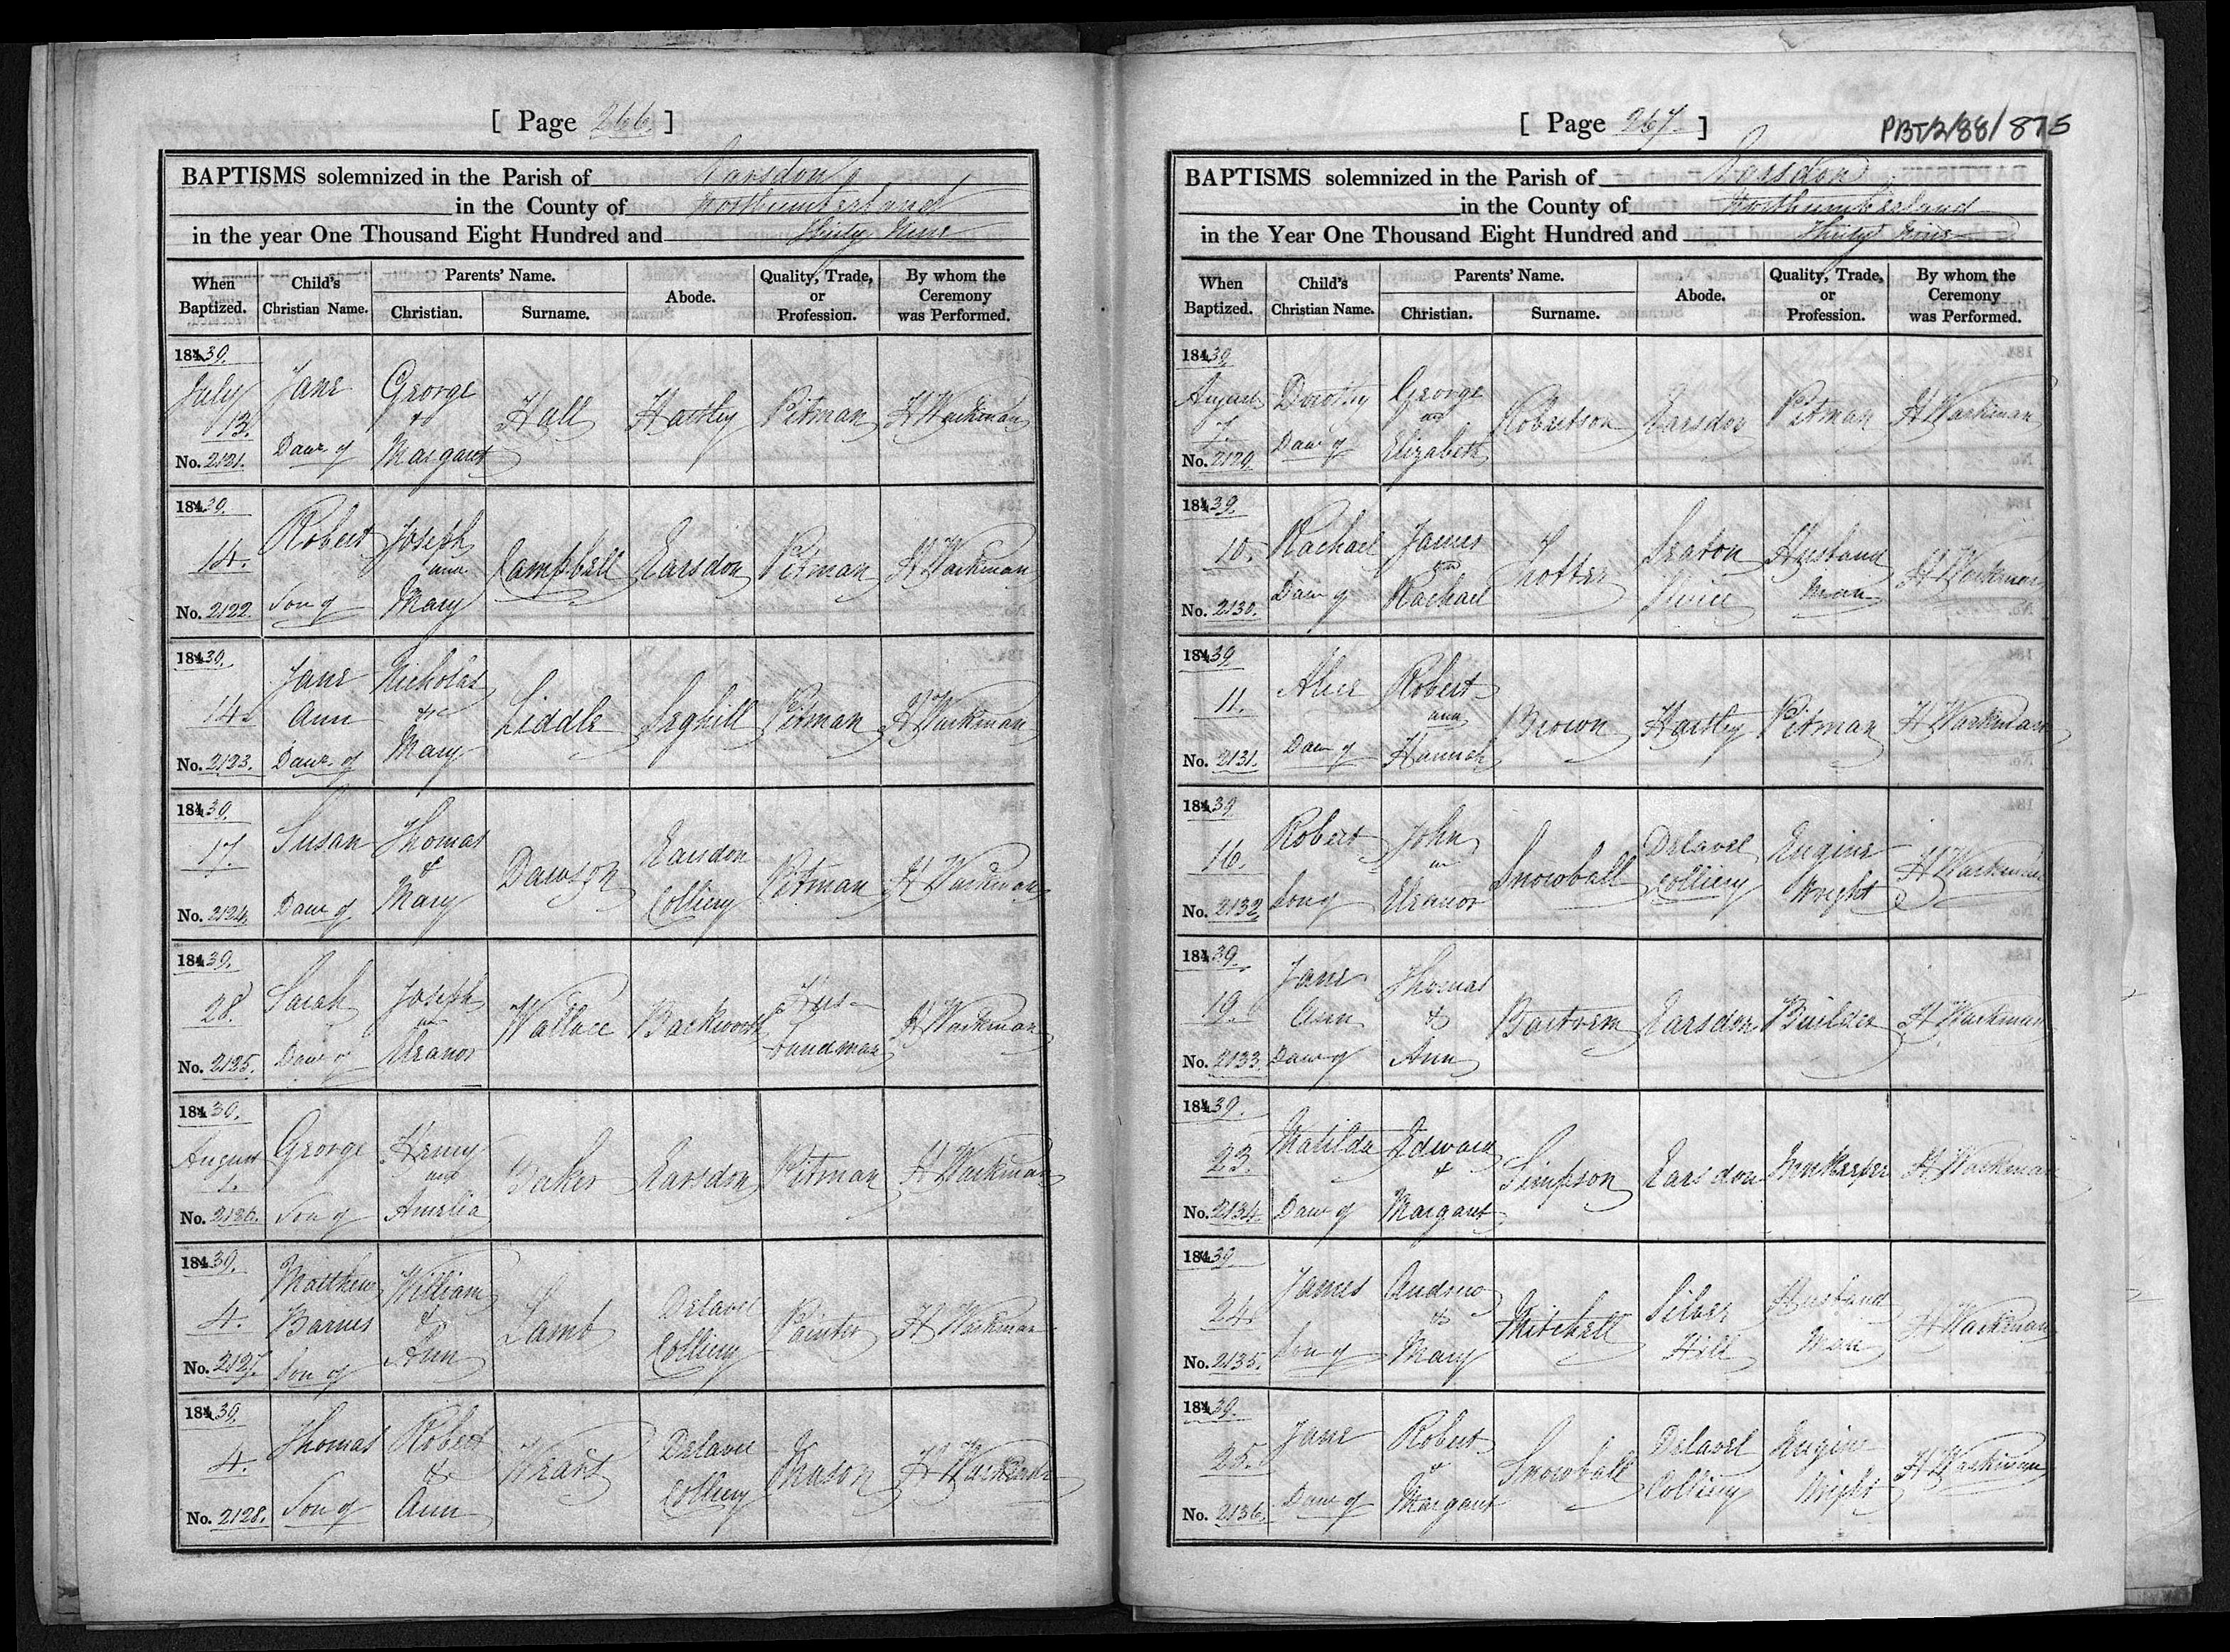 [ Page 266. ]
BAPTISMS solemnized in the Parish of Earsdon
in the County of Northumberland
in the year One Thousand Eight Hundred and Thirty Nine
When Baptized.
Child's Christian Name.
Parents' Name.
Christian.
Surname.
Abode.
Quality, Trade, or Profession.
By whom the Ceremony was Performed.
184 39.
July 13.
No. 2121.
Jane
Daur. of
George
&
Margaret
Hall
Hartley
Pitman
H Warkman
184 39.
14.
No. 2122
Robert
Son of
Joseph
and
Mary
Campbell
Earsdon
Pitman
H Warkman
184 39.
14
No. 2123.
Jane
Ann
Daur. of
Nicholas
&
Mary
Liddle
Seghill
Pitman
H Warkman
184 39.
17.
No. 2124.
Susan
Daur of
Thomas
&
Mary
Dawson
Earsdon
Colliery
Pitman
H Warkman
184 39.
28.
No. 2125.
Sarah
Daur of
Joseph
Eleanor
Wallace
Backworth
Hus-
bandman
H Warkman
184 39.
August
1.
No. 2126.
George
Son of
Henry
and
Amelia
Baker
Earsdon
Pitman
H Warkman
184 39.
4.
No. 2127.
Matthew
Barnes
Son of
William
&
Ann
Lamb
Delavel
Colliery
Painter
H Warkman
184 39.
4.
No. 2128.
Thomas
Son of
Robert
&
Ann
Delavel
Colliery
Mason
H Warkman
[ Page 267. ]
PBT/2/88/875
BAPTISMS solemnized in the Parish of Earsdon
in the County of Northumberland
in the Year One Thousand Eight Hundred and Thirty Nine
When Baptized.
Child's Christian Name.
Parents' Name.
Christian.
Surname.
Abode.
Quality, Trade, or Profession.
By whom the Ceremony was Performed.
184 39
August
7.
No. 2129
Dorothy
Daur of
George
and
Elizabeth
Robertson
Earsdon
Pitman
H Warkman
184 39.
10.
No. 2130.
Rachael
Daur of
James
and
Rachael
Seaton
Sluice
Husband
man
H Warkman
184 39
11.
No. 2131.
Alice
Daur of
Robert
and
Hannah
Brown
Hartley
Pitman
H Warkman
184 39
16.
No. 2132
Robert
Son of
John
Eleanor
Snowball
Delavel
Colliery
Engine
Wright
H Warkman
184 39.
19.
No. 2133.
Jane
Ann
Daur of
Thomas
&
Ann
Earsdon
Builder
H Warkman
184 39.
23.
No. 2134.
Matilda
Daur of
Edward
&
Margaret
Simpson
Earsdon
Innkeeper
H Warkman
184 39
24.
No. 2135.
James
Son of
Andrew
&
Mary
Mitchell
Silver
Hill
Husband
Man
H Warkman
184 39.
25.
No. 2136.
Jane
Daur of
Robert
&
Margaret
Snowball
Delavel
Colliery
Engine
Wright
H Warkman